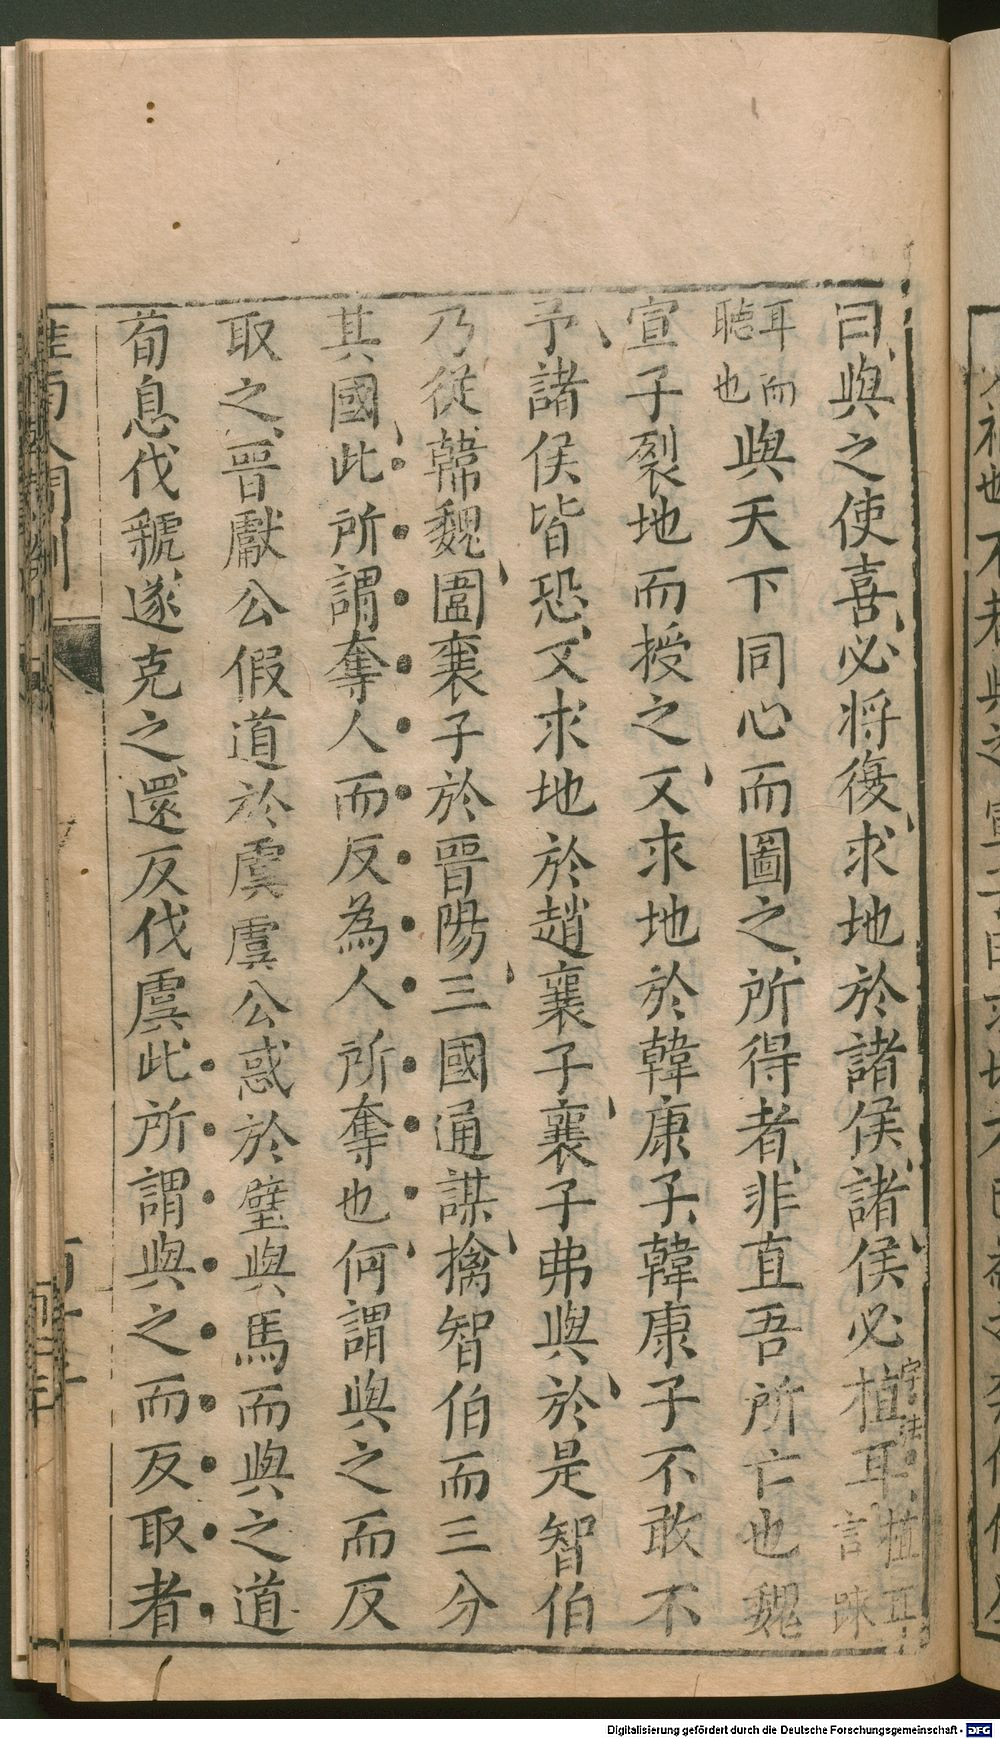 曰與之使喜必將復求地於諸侯諸侯必植耳
字法
植耳言踈
耳而聽也
與天下同心而圖之所得者非直吾所亡也魏
宣子裂地而授之又求地於韓康子韓康子不敢不
予諸侯皆恐又求地於趙襄子襄子弗與於是智伯
乃從韓魏圍襄子於晉陽三國通謀擒智伯而三分
其國此所謂奪人而反為人所奪也何謂與之而反
取之晉獻公假道於虞虞公惑於璧與馬而與之道
荀息伐虢遂克之還反伐虞此所謂與之而反取者
Digitalisierung gefördert durch die Deutsche Forschungsgemeinschaft - DFG